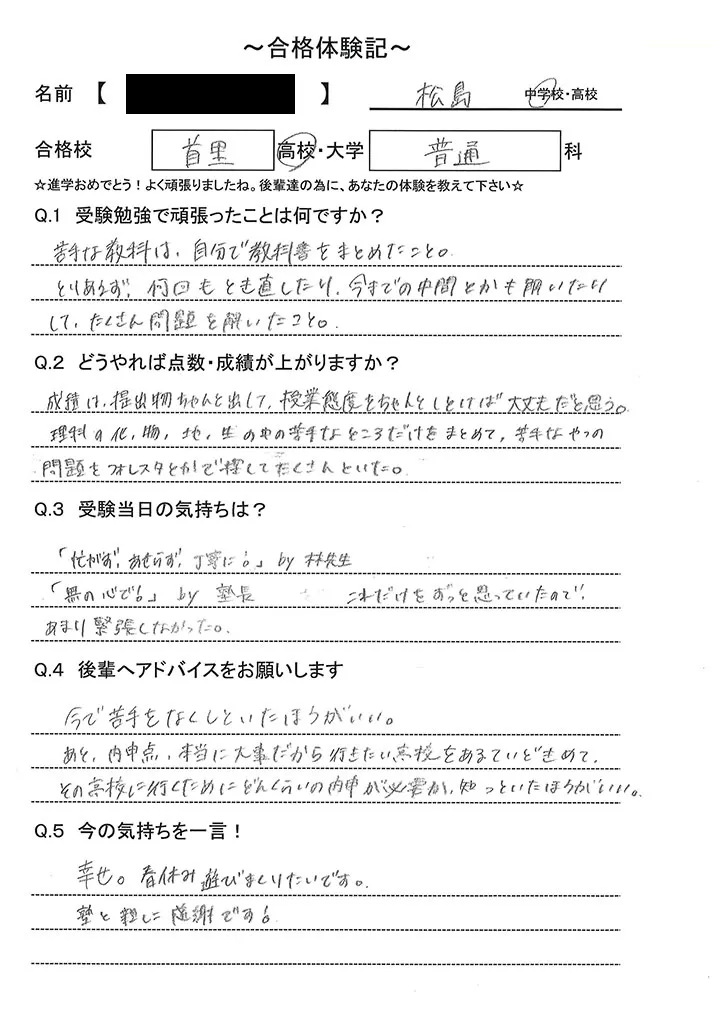 ～合格体験記～
名前【 】 松島 中学校・高校
合格校 首里 高校・大学 普通 科
☆進学おめでとう！よく頑張りましたね。後輩達の為に、あなたの体験を教えて下さい☆
Q.1 受験勉強で頑張ったことは何ですか？
苦手な教科は、自分で教科書をまとめたこと。
とりあえず、何回もとき直したり、今までの中間とかも解いたり
して、たくさん問題を解いたこと。
Q.2 どうやれば点数・成績が上がりますか？
成績は、提出物ちゃんと出して、授業態度をちゃんとしとけば大丈夫だと思う。
理科の化、物、地、生の中の苦手なところだけをまとめて、苦手なやつの
問題をフォレスタとかで探してたくさんといた。
Q.3 受験当日の気持ちは？
「忙がず、あせらず、丁寧に!」by 林先生
「無の心で!」by 塾長 これだけをずっと思っていたので、
あまり緊張しなかった。
Q.4 後輩へアドバイスをお願いします
今で苦手をなくしといたほうがいい。
あと、内申点、本当に大事だから行きたい高校をあるていどきめて、
その高校に行くためにどんくらいの内申が必要か、知っといたほうがいい。
Q.5 今の気持ちを一言！
幸せ。春休み遊びまくりたいです。
塾と親に感謝です!